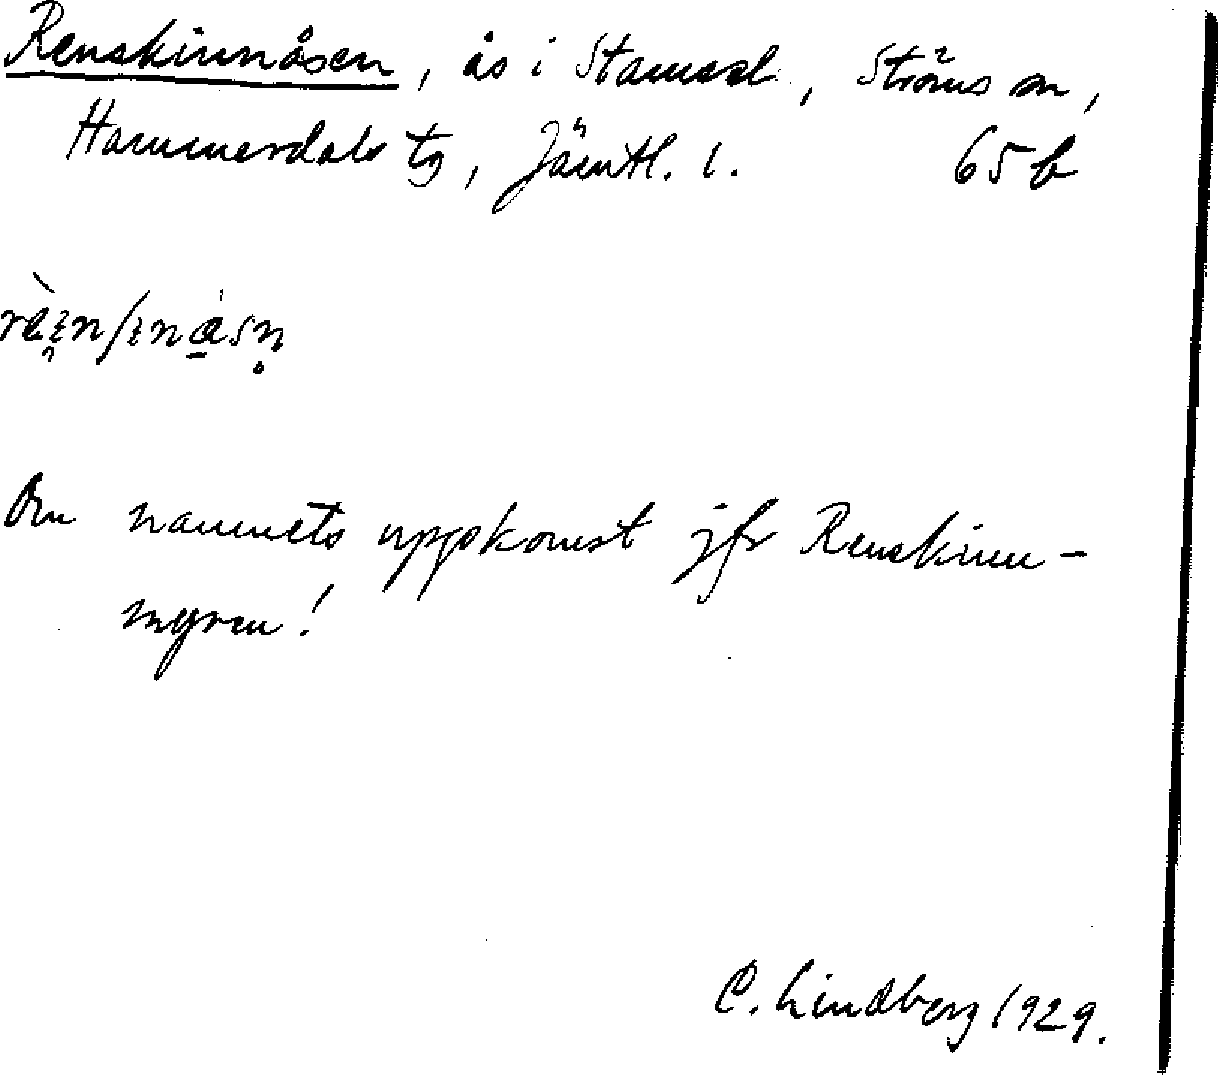 Renskinnåsen, ås i Stamsel, Ströms sn,
Hammerdals tg, Jämtl. l. 65 b
Om namnets uppkomst jfr Renskinn-
myren!
C. Lindberg 1929.